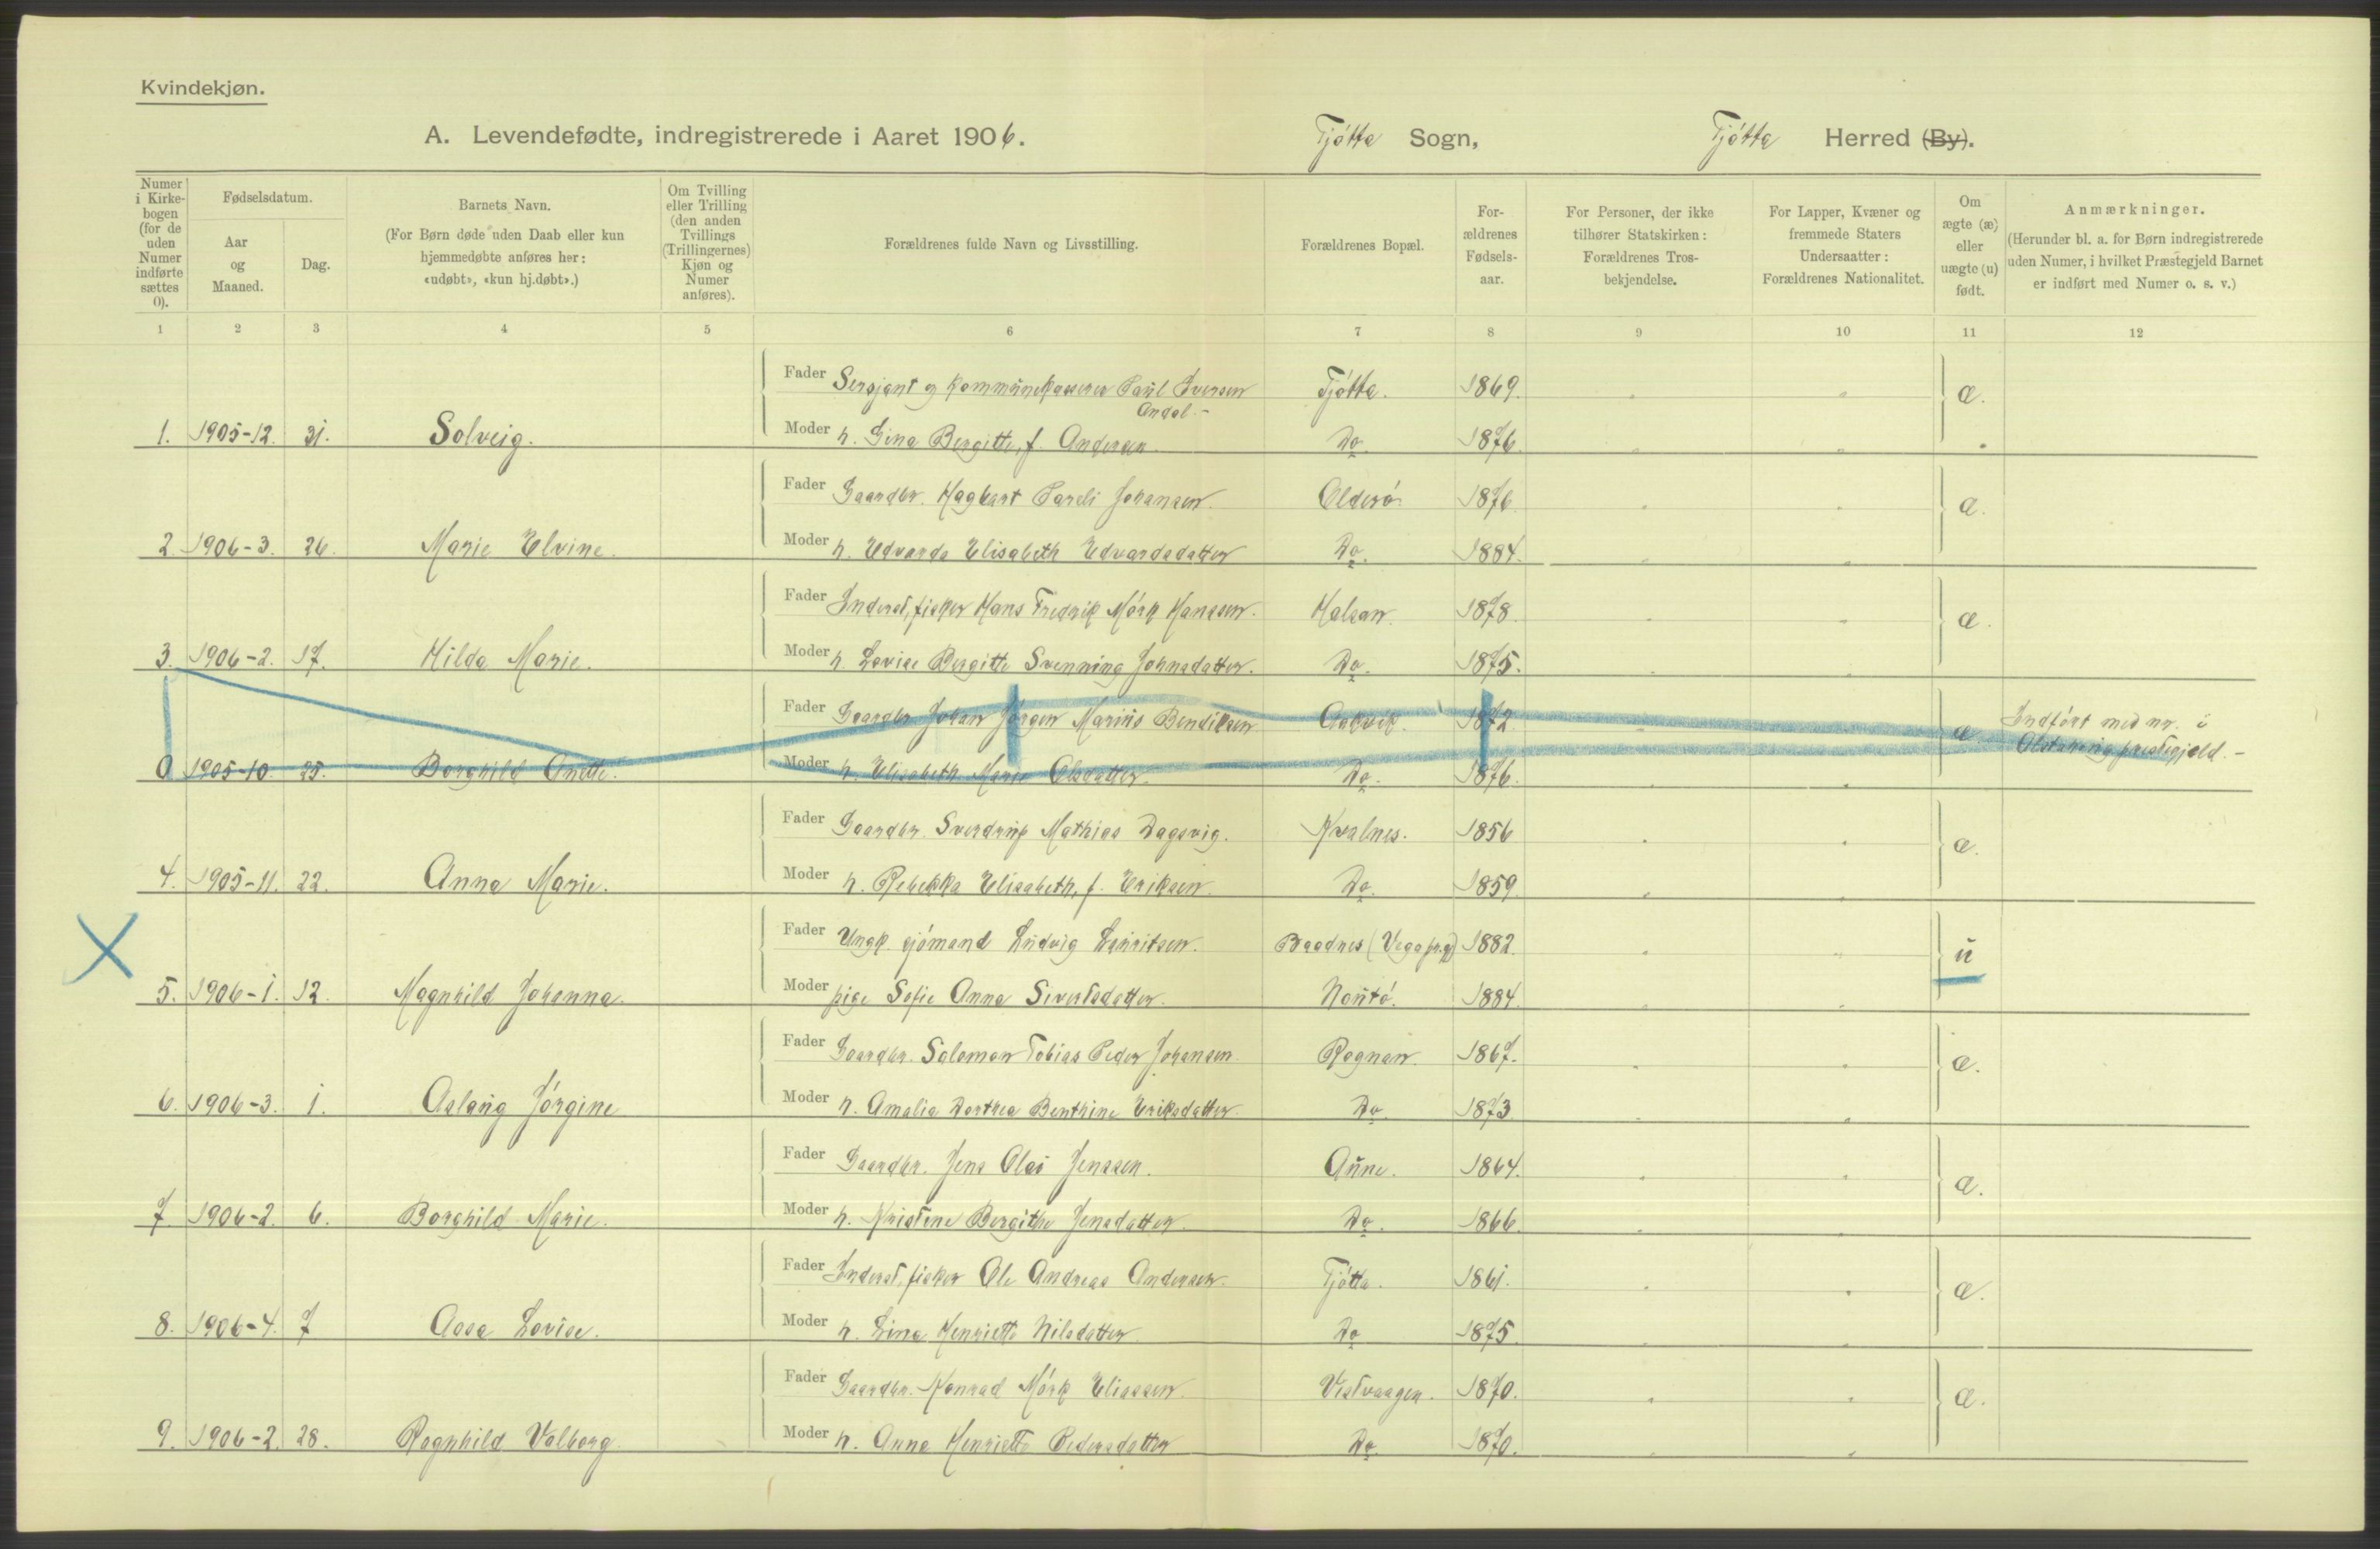 Kvindekjøn.
A. Levendefødte, indregistrerede i Aaret 1906. Tjøtta Sogn, Tjøtta Herred (By).
Numer i Kirkebogen (for de uden Numer indførte sættes 0).
Fødselsdatum.
Aar og Maaned.
Dag.
Barnets Navn.
(For Børn døde uden Daab eller kun hjemmedøbte anføres her: «udøbt», «kun hj.døbt».)
Om Tvilling eller Trilling (den anden Tvillings (Trillingernes) Kjøn og Numer anføres).
Forældrenes fulde Navn og Livsstilling.
Forældrenes Bopæl.
For-ældrenes Fødsels-aar.
For Personer, der ikke tilhører Statskirken: Forældrenes Tros-bekjendelse.
For Lapper, Kvæner og fremmede Staters Undersaatter: Forældrenes Nationalitet.
Om ægte (æ) eller uægte (u) født.
Anmærkninger.
(Herunder bl. a. for Børn indregistrerede uden Numer, i hvilket Præstegjeld Barnet er indført med Numer o. s. v.)
1 2 3 4 5 6 7 8 9 10 11 12
Fader Sersjant og Kommunekasserer Paul Iversen Tjøtta. 1869. æ.
Andal.-
1. 1905-12. 31. Solveig. Moder h. Gina Bergitte, f. Andersen. Do. 1876.
Fader Gaardbr. Hagbart Pareli Johansen. Olderø. 1876. æ.
2. 1906-3. 26. Marie Elvine. Moder h. Edvarda Elisabeth Edvardsdatter Do. 1884.
Fader Inderst, fisker Hans Fredrik Mørk Hanssen. Halsan. 1878. æ.
3. 1906-2. 17. Hilda Marie. Moder h. Lovise Bergitte Svenning Johnsdatter. Do. 1875.
Fader Gaardbr. Johan Jørgen Marius Bendiksen 1872. æ Indført med nr. i
0 1905-10. 25. Borghild Anette. Moder h. Elisabeth Marie Olsdatter. Do. 1876. Alstahaug prestegjeld.-
Fader Gaardbr. Sverdrup Mathias Dagsvig. Kvalnes. 1856 æ.
4. 1905-11. 22. Anna Marie. Moder h. Rebekka Elisabeth, f. Eriksen. Do. 1859.
Fader Ungk. sjømand Ludvig Lauritsen. Baadnes (Vega pr.gj) 1882. u
5. 1906-1. 12. Magnhild Johanna. Moder pige Sofie Anna Sivertsdatter. 1884.
Fader Gaardbr. Salomon Tobias Peder Johansen. Rognan. 1867. æ.
6. 1906-3. 1. Aslaug Jørgine Moder h. Amalia Dorthea Benthine Eriksdatter. Do. 1873
Fader Gaardbr. Jens Olai Jenssen. Aune. 1864. æ.
7. 1906-2. 6. Borghild Marie. Moder h. Kristine Bergithe Jensdatter. Do. 1866.
Fader Inderst, fisker Ole Andreas Andersen. Tjøtta. 1861. æ.
8. 1906-4. 7 Aasa Lovise. Moder h. Lina Henriette Nilsdatter Do 1875.
Fader Gaardbr. Konrad Mørk Eliassen. Vistvaagen. 1870. æ.
9. 1906-2. 28. Ragnhild Valborg. Moder h. Anna Henriette Pedersdatter Do. 1870.